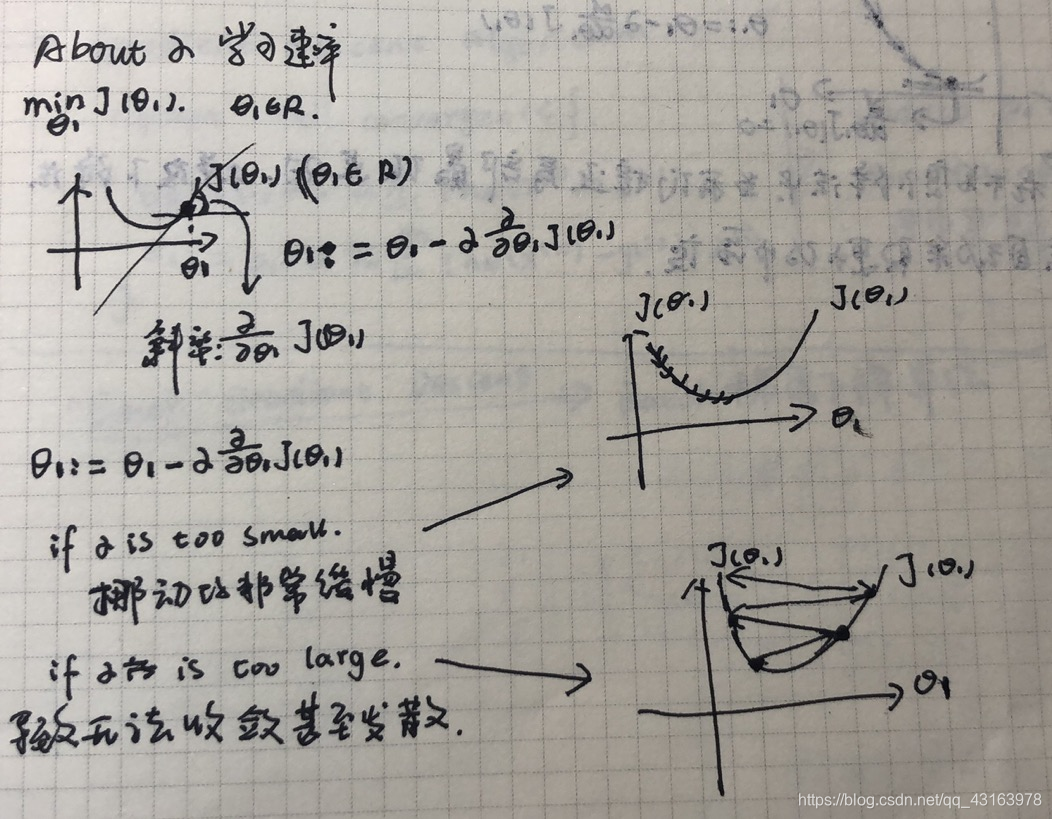 About α 学习速率
min J(θ₁). θ₁∈R.
θ₁
J(θ₁) (θ₁∈R)
θ₁
θ₁:= θ₁ - α ∂/∂θ₁ J(θ₁)
斜率: ∂/∂θ₁ J(θ₁)
J(θ₁) J(θ₁)
θ₁
θ₁:= θ₁ - α ∂/∂θ₁ J(θ₁)
if α is too small.
挪动也非常缓慢
J(θ₁) J(θ₁)
θ₁
if α is too large.
导致无法收敛甚至发散.
https://blog.csdn.net/qq_43163978